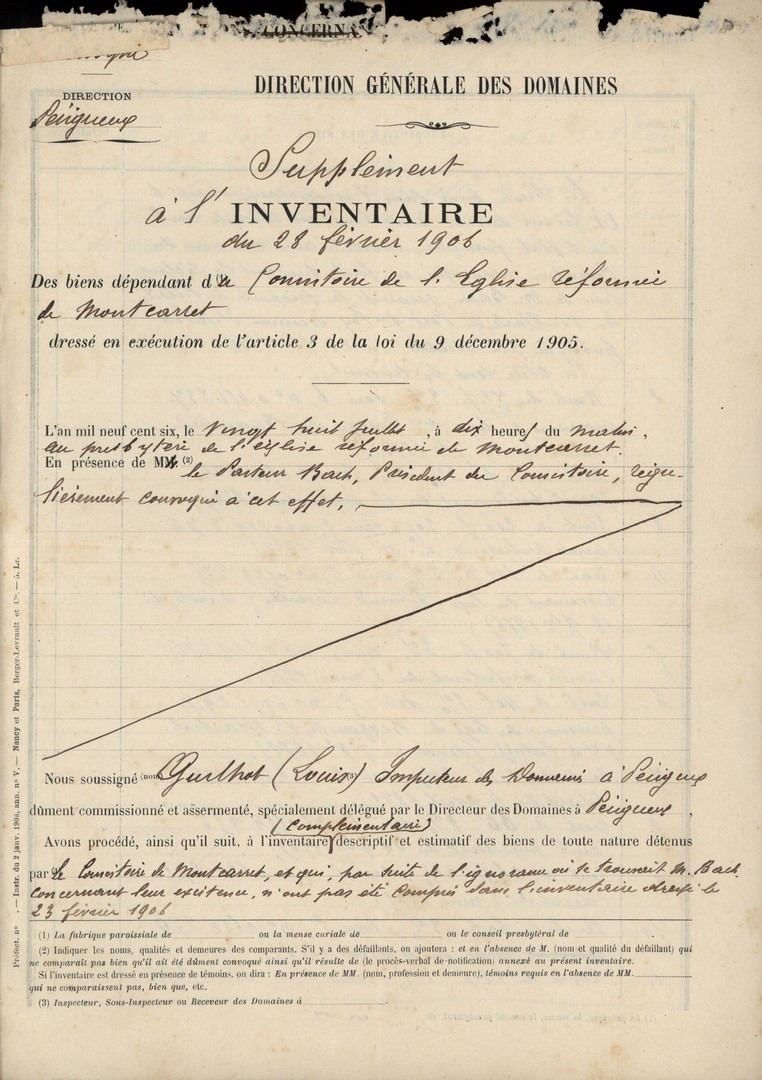 CONCERNA
DIRECTION
Périgueux
DIRECTION GÉNÉRALE DES DOMAINES
Supplément
à l'INVENTAIRE
du 28 février 1906
Des biens dépendant du Consistoire de l. Eglise réformée
de Montcarret
dressé en exécution de l'article 3 de la loi du 9 décembre 1905.
L'an mil neuf cent six, le vingt huit juillet, à dix heures du matin,
au presbytère de l'église réformée de Montcarret.
En présence de M. (2) le Pasteur Bach, Président du Consistoire, régu-
lièrement convoqué à cet effet.
Nous soussigné (nom) (Louis) (3) Inspecteur des Domaines à Périgueux
dûment commissionné et assermenté, spécialement délégué par le Directeur des Domaines à Périgueux,
(complémentaire)
Avons procédé, ainsi qu'il suit, à l'inventaire descriptif et estimatif des biens de toute nature détenus
par le Consistoire de Montcarret, et qui, par suite de l'ignorance où se trouvait M. Bach
concernant leur existence, n'ont pas été compris dans l'inventaire dressé le
23 février 1906
(1) La fabrique paroissiale de ou la mense curiale de ou le conseil presbytéral de
(2) Indiquer les noms, qualités et demeures des comparants. S'il y a des défaillants, on ajoutera : et en l'absence de M. (nom et qualité du défaillant) qui
ne comparaît pas bien qu'il ait été dûment convoqué ainsi qu'il résulte de (le procès-verbal de notification) annexé au présent inventaire.
Si l'inventaire est dressé en présence de témoins, on dira : En présence de MM. (nom, profession et demeure), témoins requis en l'absence de MM.
qui ne comparaissent pas, bien que, etc.
(3) Inspecteur, Sous-Inspecteur ou Receveur des Domaines à
Préfect. n° . — Instr. du 2 janv. 1906, ann. n° V. — Nancy et Paris, Berger-Levrault et Cie. — 5. Lr.